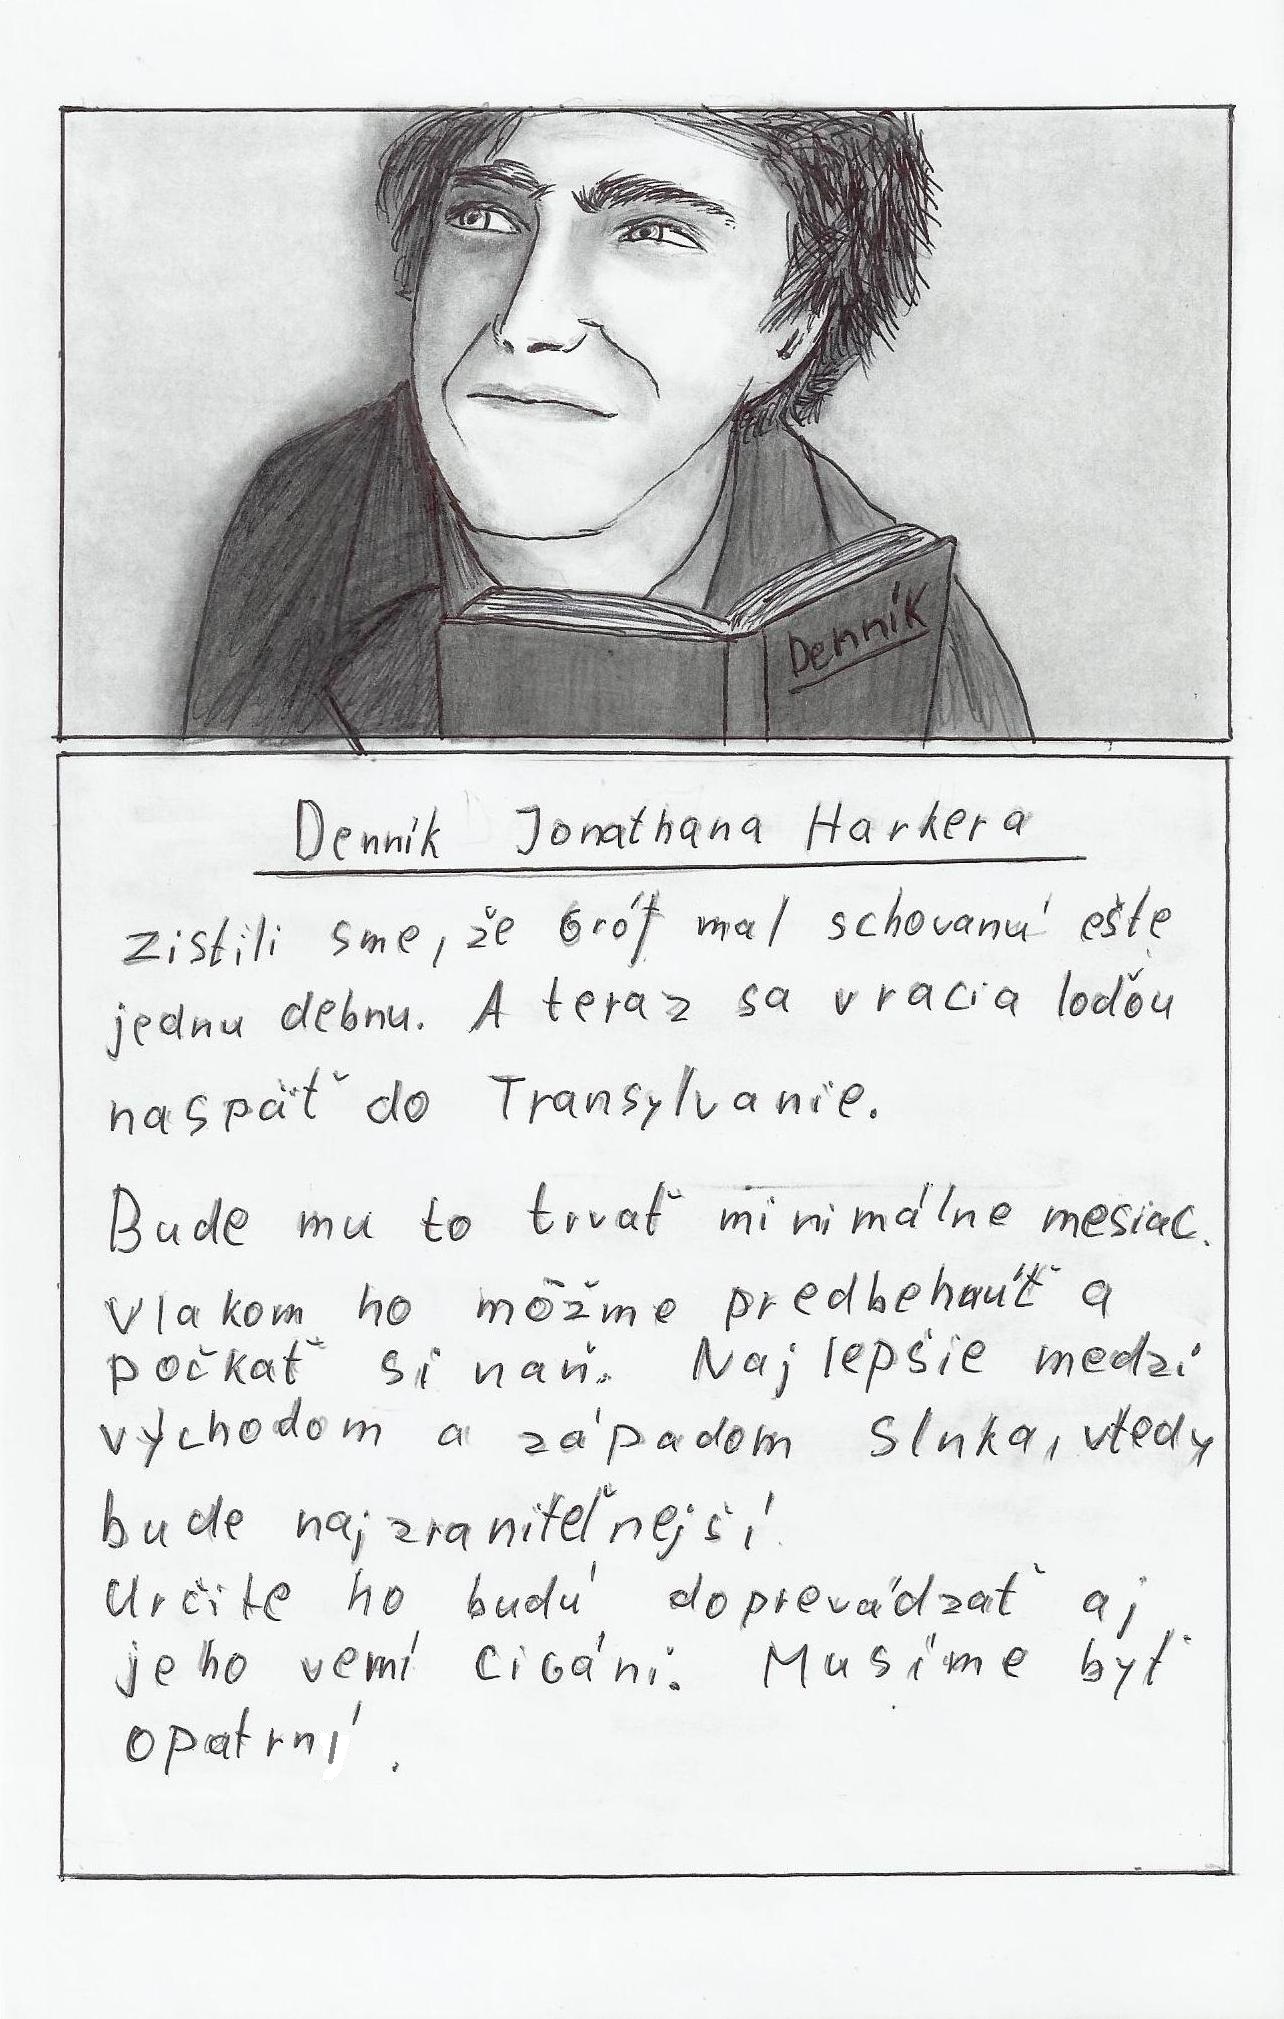 Denník
Denník Jonathana Harkera
zistili sme, že Gróf mal schovanú ešte
jednu debnu. A teraz sa vracia loďou
naspäť do Transylvanie.
Bude mu to trvať minimálne mesiac.
Vlakom ho môžme predbehnúť a
počkať si naň. Najlepšie medzi
východom a západom Slnka, vtedy
bude najzraniteľnejší.
Určite ho budú doprevádzať aj
jeho verní Cigáni. Musíme byť
opatrní.